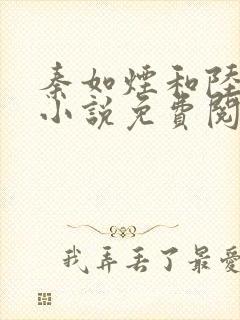 秦如煙和陸
小說免費閱
我弄丟了最愛